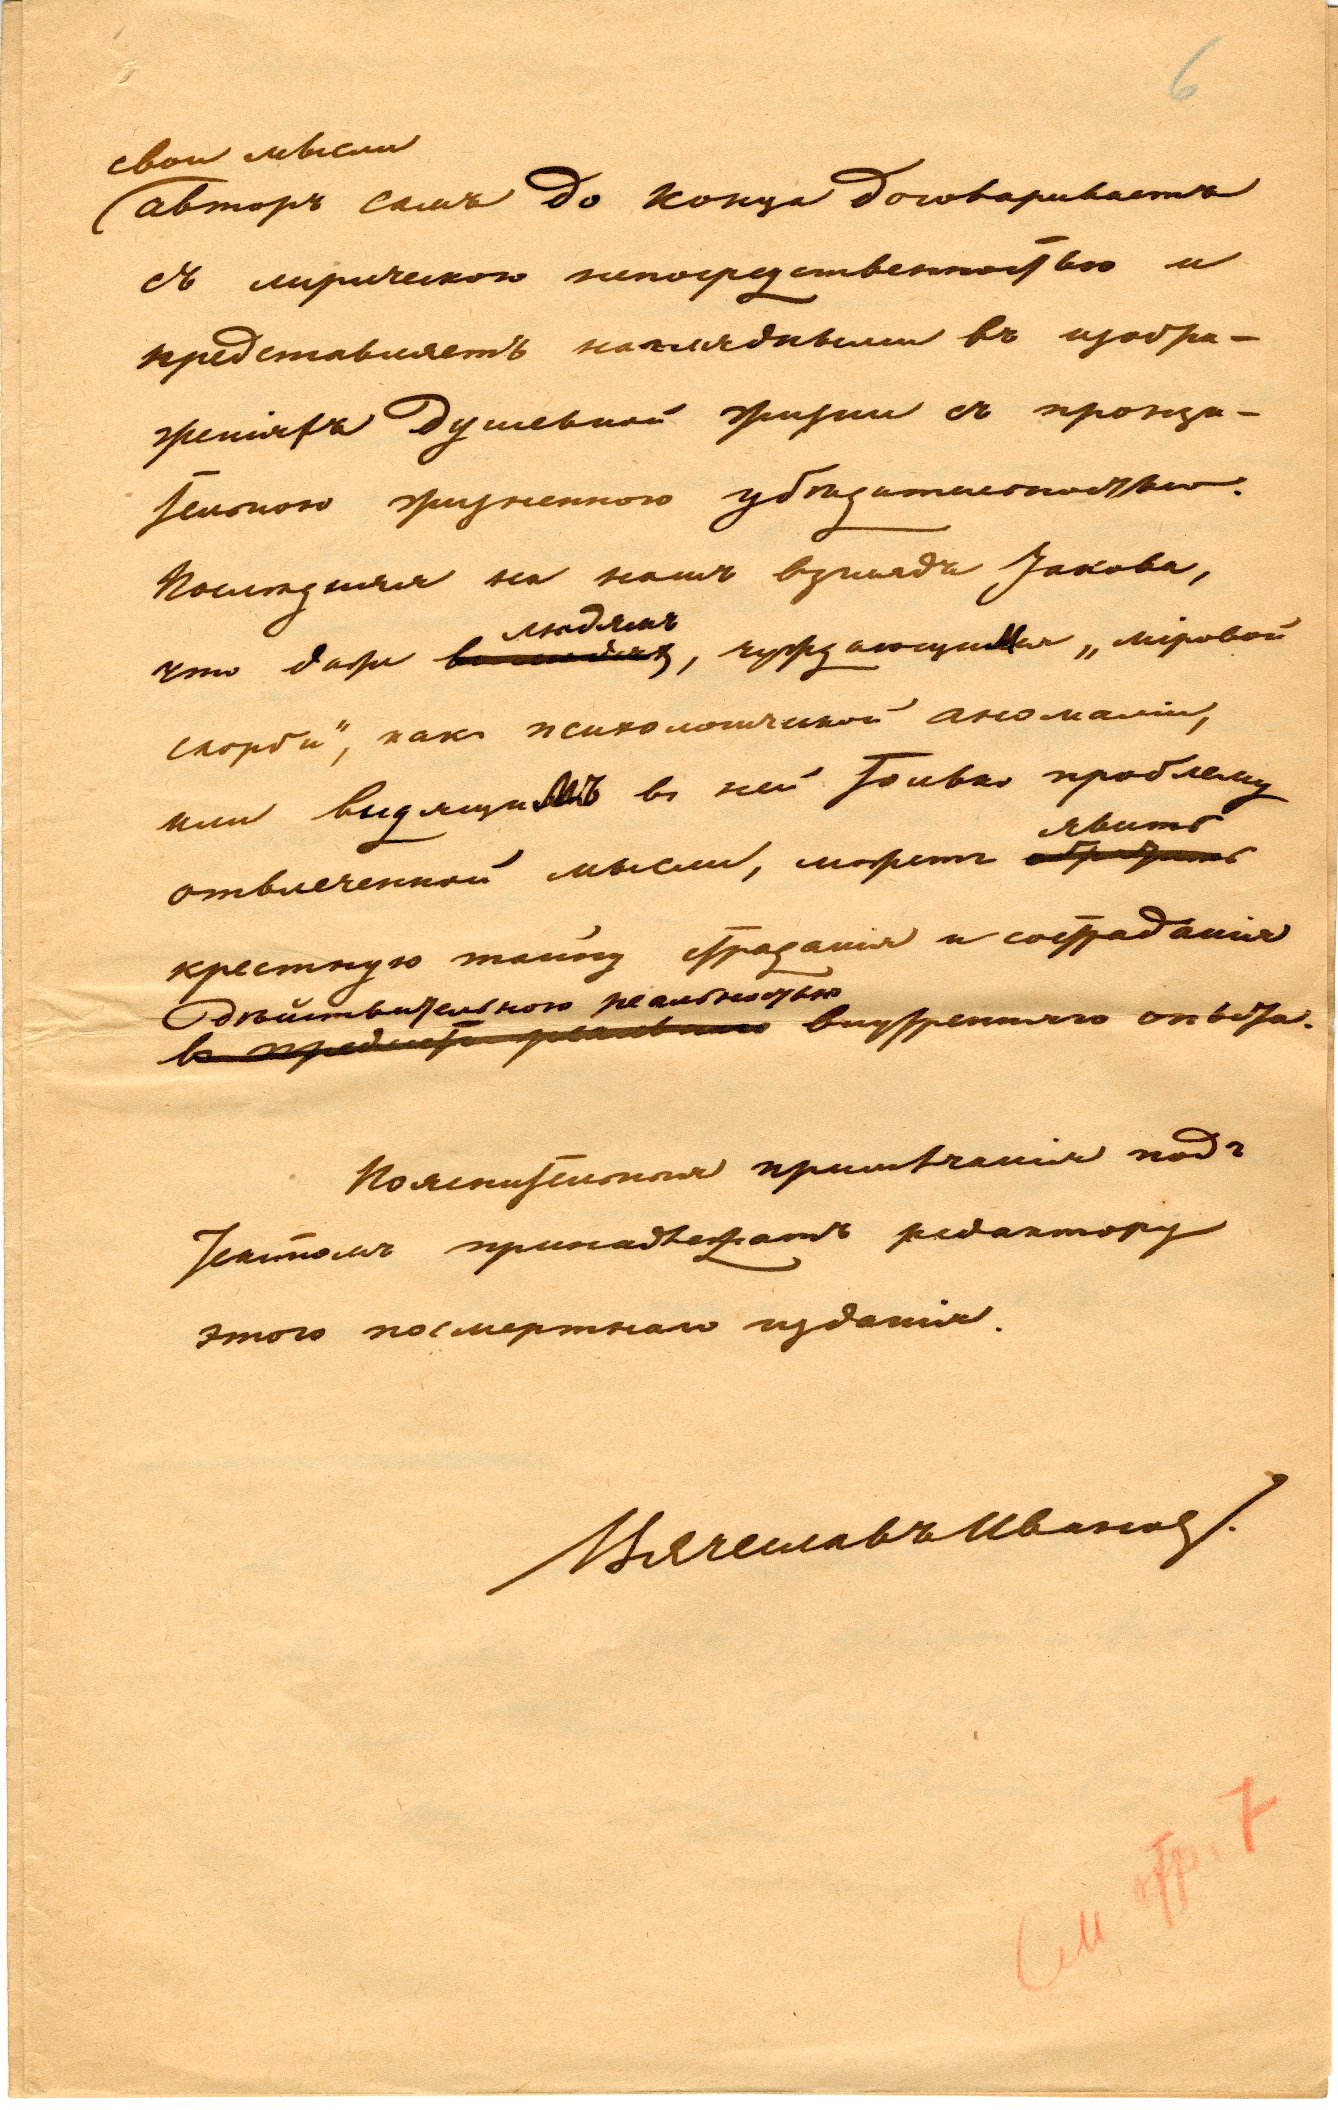 6
свои мысли
авторъ самъ до конца договариваетъ
съ лирическою непосредственностью и
представляетъ наглядными въ изобра-
женіяхъ душевной жизни съ пронзи-
тельною жизненною убѣдительностью.
Послѣдняя на нашъ взглядъ такова,
людямъ
что даже, чуждающимся „міровой
скорби", какъ психологической аномаліи,
или видящимъ въ ней только проблему
явить
отвлеченной мысли, можетъ
крестную тайну страданія и состраданія
дѣйствительною реальностью
внутренняго опыта.
Пояснительныя примѣчанія подъ
текстомъ принадлежатъ редактору
этого посмертнаго изданія.
Вячеславъ Ивановъ.
См. стр. 7